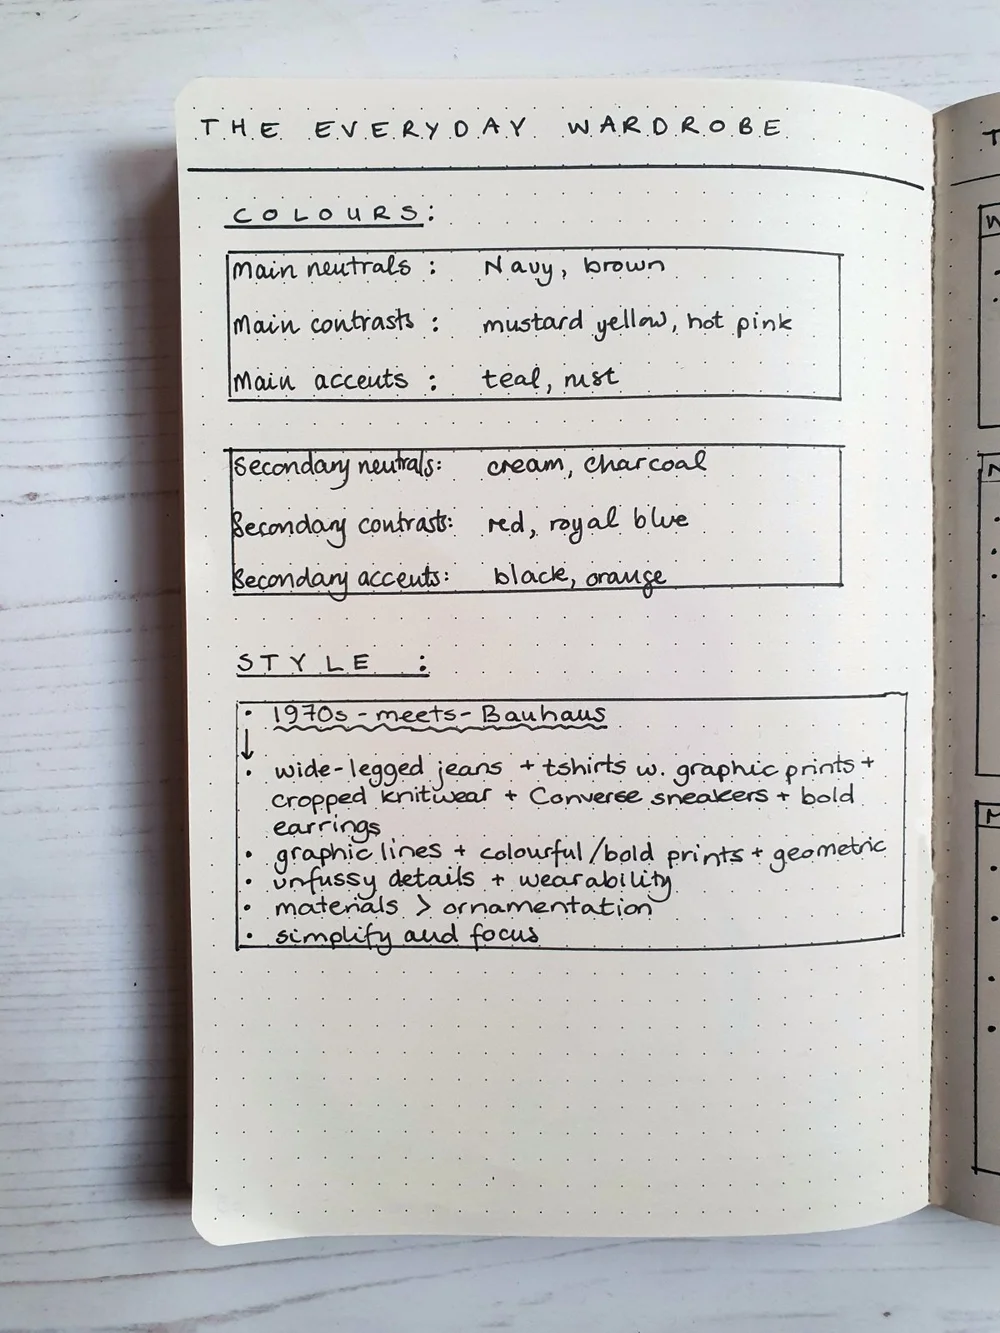 THE EVERYDAY WARDROBE
COLOURS:
Main neutrals : Navy, brown
Main contrasts : mustard yellow, hot pink
Main accents : teal, rust
Secondary neutrals: cream, charcoal
Secondary contrasts: red, royal blue
Secondary accents: black, orange
STYLE :
• 1970s - meets - Bauhaus
↓
• wide-legged jeans + tshirts w. graphic prints +
cropped knitwear + Converse sneakers + bold
earrings
• graphic lines + colourful/bold prints + geometric
• unfussy details + wearability
• materials > ornamentation
• simplify and focus